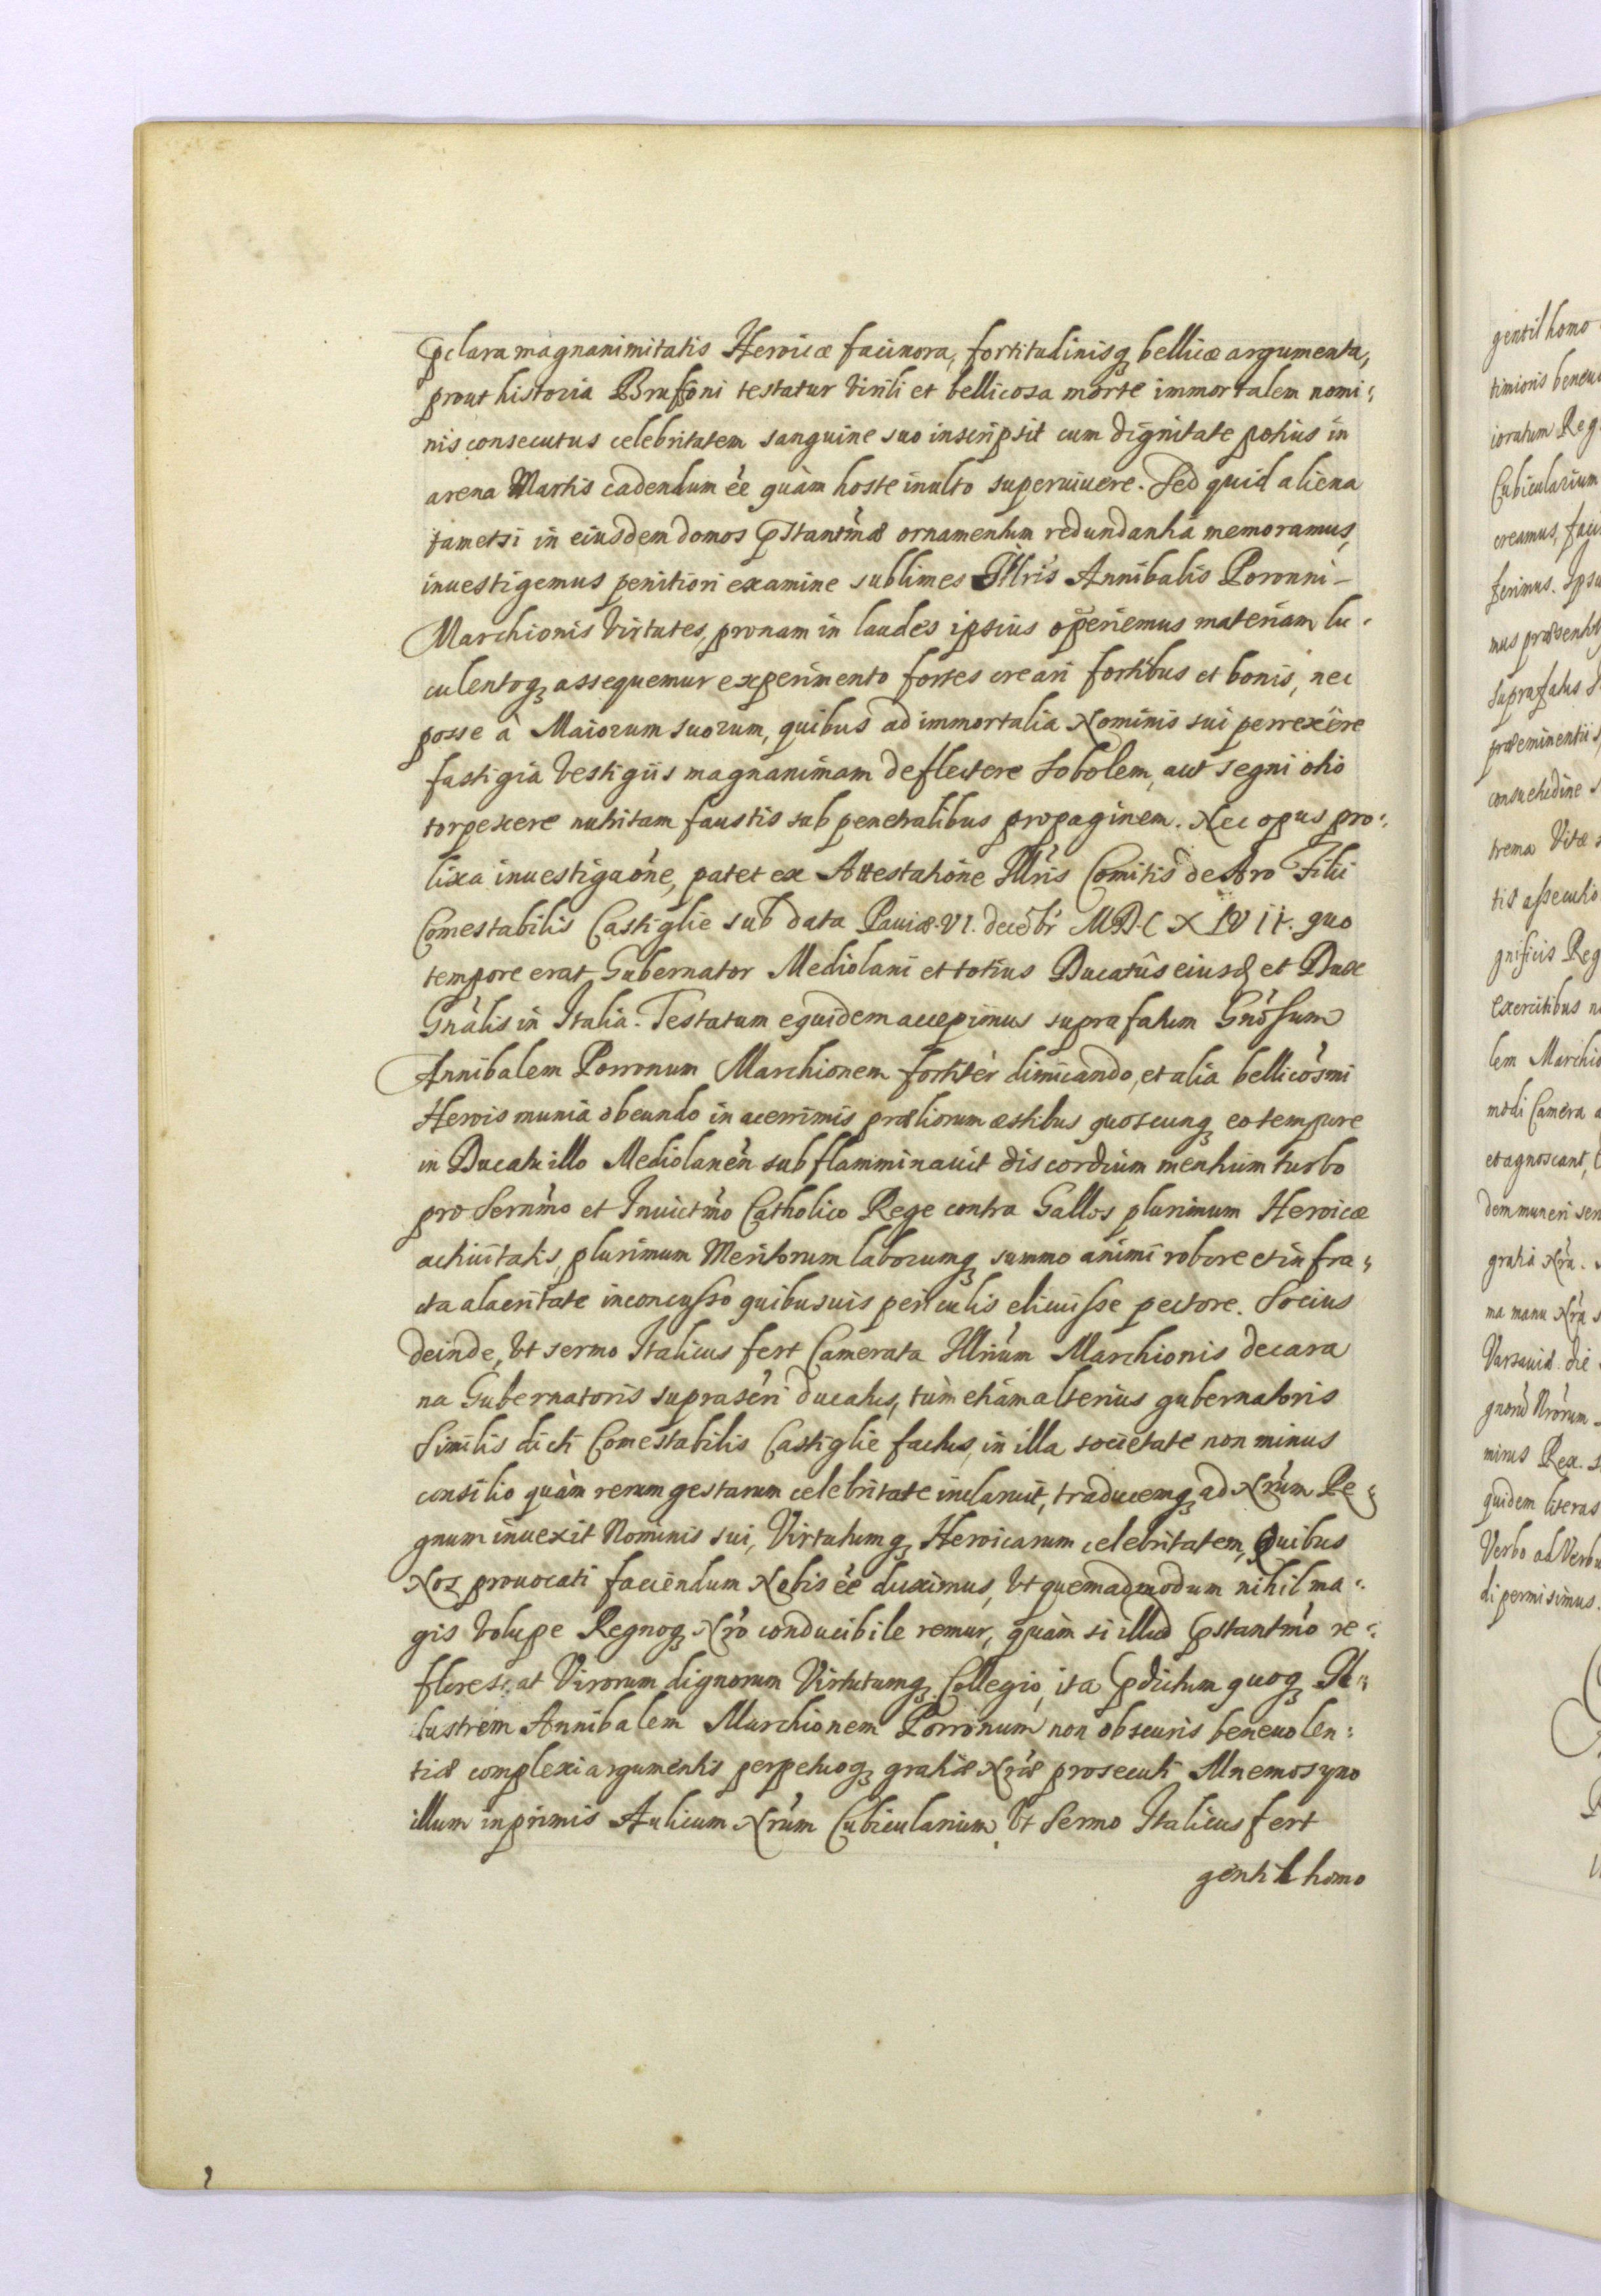 pclara magnanimitatis Heroicæ facinora, fortitudinisq bellicæ argumenta,
prout historia Brusoni testatur virili et bellicosa morte immortalem nomi:
nis consecutus celebritatem sanguine suo inscripsit cum dignitate potius in
arena Martis cadendum ée quàm hoste inulto superuiuere. Sed quid aliena
tametsi in eiusdem domos pstantmæ ornamentum redundantia memoramus,
inuestigemus penitiori examine sublimes Illris Annibalis Poronni-
Marchionis virtutes, pronam in laudes ipsius operiemus materiam lu:
culentoq assequemur experimento fortes creari fortibus et bonis, nec
posse à Maiorum suorum, quibus ad immortalia Nominis sui perrexère
fastigia vestigiis magnanimam deflectere sobolem, aut segni otio
torpescere nutritam faustis sub penetralibus propaginem. Nec opus pro:
lixa inuestigaone, patet ex Attestatione Illris Comitis de Aro Filii
Comestabilis Castiglie sub data Pauiæ. VI. decebr MDCXLVII. quo
tempore erat Gubernator Mediolani et totius Ducatûs eiusd et Dux
Gnalis in Italia. Testatum equidem accepimus suprafatum Gnosum
Annibalem Porronum Marchionem fortitèr dimicando, et alia bellicosmi
Herois munia obeundo in acerrimis præliorum æstibus quoscunq eo tempore
in Ducatu illo Mediolanen sub flamminauit discordium mentium turbo
pro Sernmo et Inuictmo Catholico Rege contra Gallos plurimum Heroicæ
actiuitatis, plurimum Meritorum laborumq summo animi robore et infra:
cta alacritate inconcusso quibusuis periculis elicuisse pectore. Socius
deinde, vt sermo Italicus fert Camerata Illrium Marchionis decara
na Gubernatoris suprascri ducatus, tùm etiam alterius gubernatoris
Similis dicti Comestabilis Castiglie factus, in illa societate non minus
consilio quàm rerum gestarum celebritate inclaruit, traducemq ad Nrum Re:
gnum inuexit Nominis sui, Virtutumq Heroicarum celebritatem, Quibus
Nos prouocati faciendum Nobis ée duximus, vt quemadmodum nihil ma:
gis volupe Regnoq Nro conducibile remur, quàm si illud pstantmo re:
florescat Virorum dignorum Virtutumq Collegio, ita pdictum quoq Il:
lustrem Annibalem Marchionem Porronum non obscuris beneuolen:
tiæ complexi argumentis perpetuoq gratiæ Nræ prosecuti Mnemosyno
illum inprimis Aulicum Nrum Cubicularium, vt Sermo Italicus fert
gentil homo
gentil homo
ioratum Reg
Cubicularium
creamus, faci
ferimus. Ipsu
suprafatus
præeminentiis
consuetudine s
trema Vitæ
gnificis Reg
exercitibus n
lem Marchio
modi Camera a
et agnoscant,
dem muneri ser
gratia Nra.
ma manu Nra s
Varsauiæ die
gnorū Nrorum
mirus Rex. s
quidem literas
Verbo ad Verbu
di permisimus.